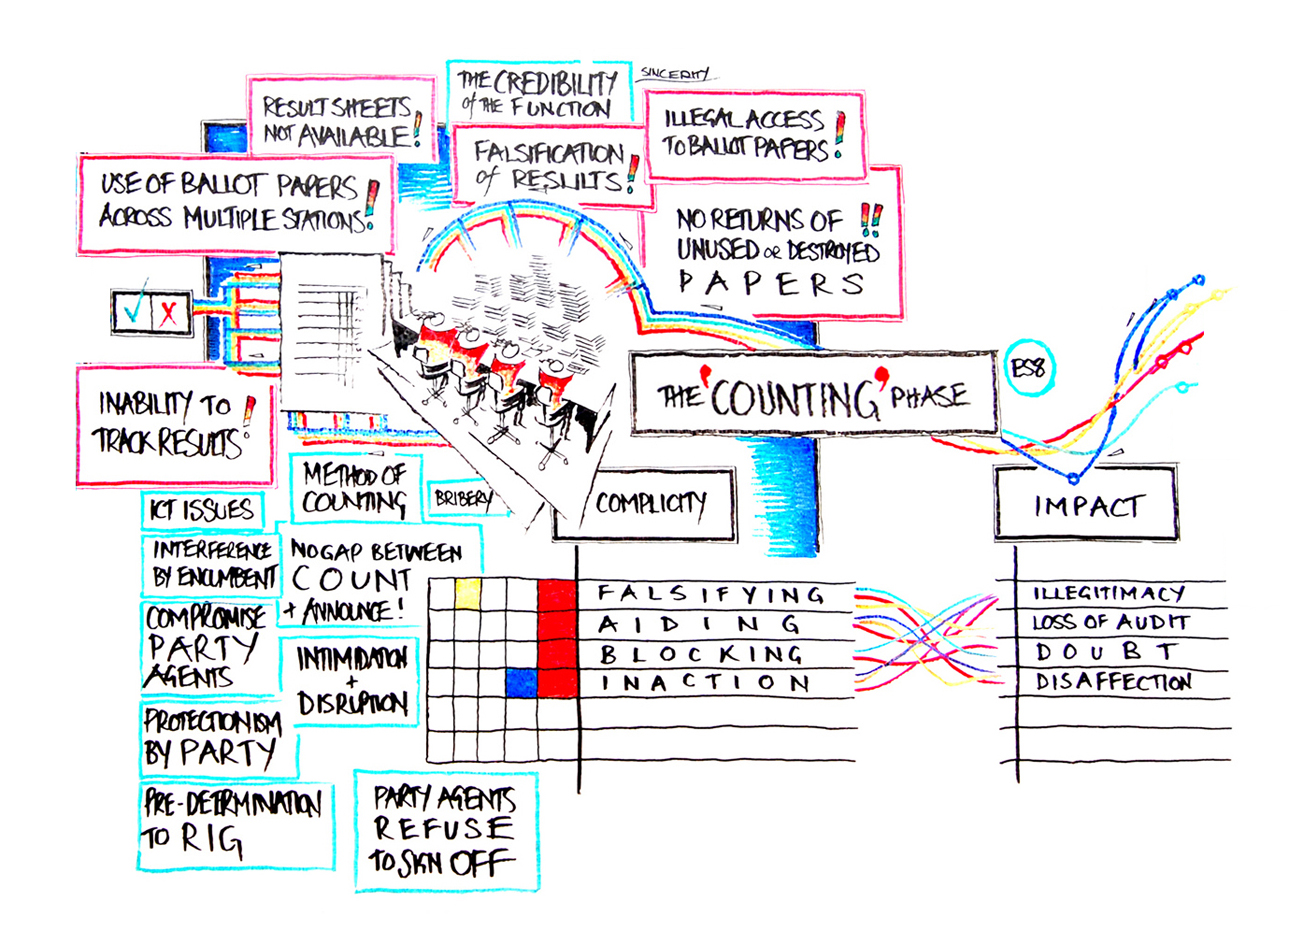 RESULT SHEETS
NOT AVAILABLE!
THE CREDIBILITY
of THE FUNCTION
SINCERITY
ILLEGAL ACCESS
TO BALLOT PAPERS!
USE OF BALLOT PAPERS
ACROSS MULTIPLE STATIONS!
FALSIFICATION
of RESULTS!
NO RETURNS OF !!
UNUSED OR DESTROYED
PAPERS
✓ X
THE 'COUNTING' PHASE
ES8
INABILITY TO
TRACK RESULTS!
METHOD OF
COUNTING
BRIBERY
COMPLICITY
IMPACT
ICT ISSUES
INTERFERENCE
BY ENCUMBENT
NO GAP BETWEEN
COUNT
+ ANNOUNCE!
COMPROMISE
PARTY
AGENTS
INTIMIDATION
+
DISRUPTION
PROTECTIONISM
BY PARTY
PRE-DETERMINATION
TO RIG
PARTY AGENTS
REFUSE
TO SIGN OFF
FALSIFYING
AIDING
BLOCKING
INACTION
ILLEGITIMACY
LOSS OF AUDIT
DOUBT
DISAFFECTION